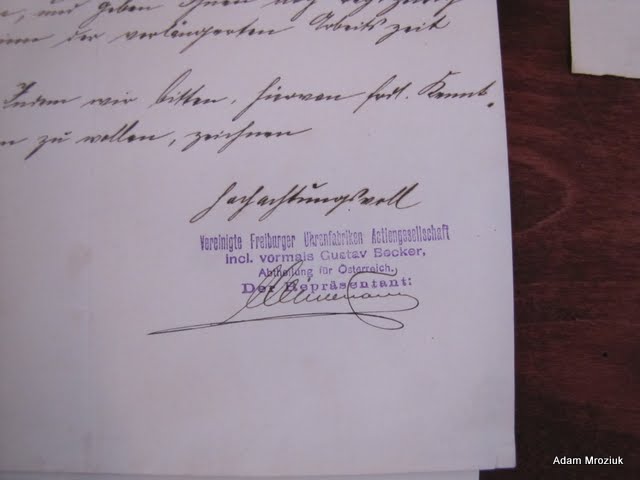 und geben Ihnen
der verlängerten Arbeitszeit
Indem wir bitten, hiervon frdl. Kennt-
zu wollen, zeichnen
hochachtungsvoll
Vereinigte Freiburger Uhrenfabriken Actiengesellschaft
incl. vormals Gustav Becker,
Abtheilung für Österreich.
Der Repräsentant:
Adam Mroziuk